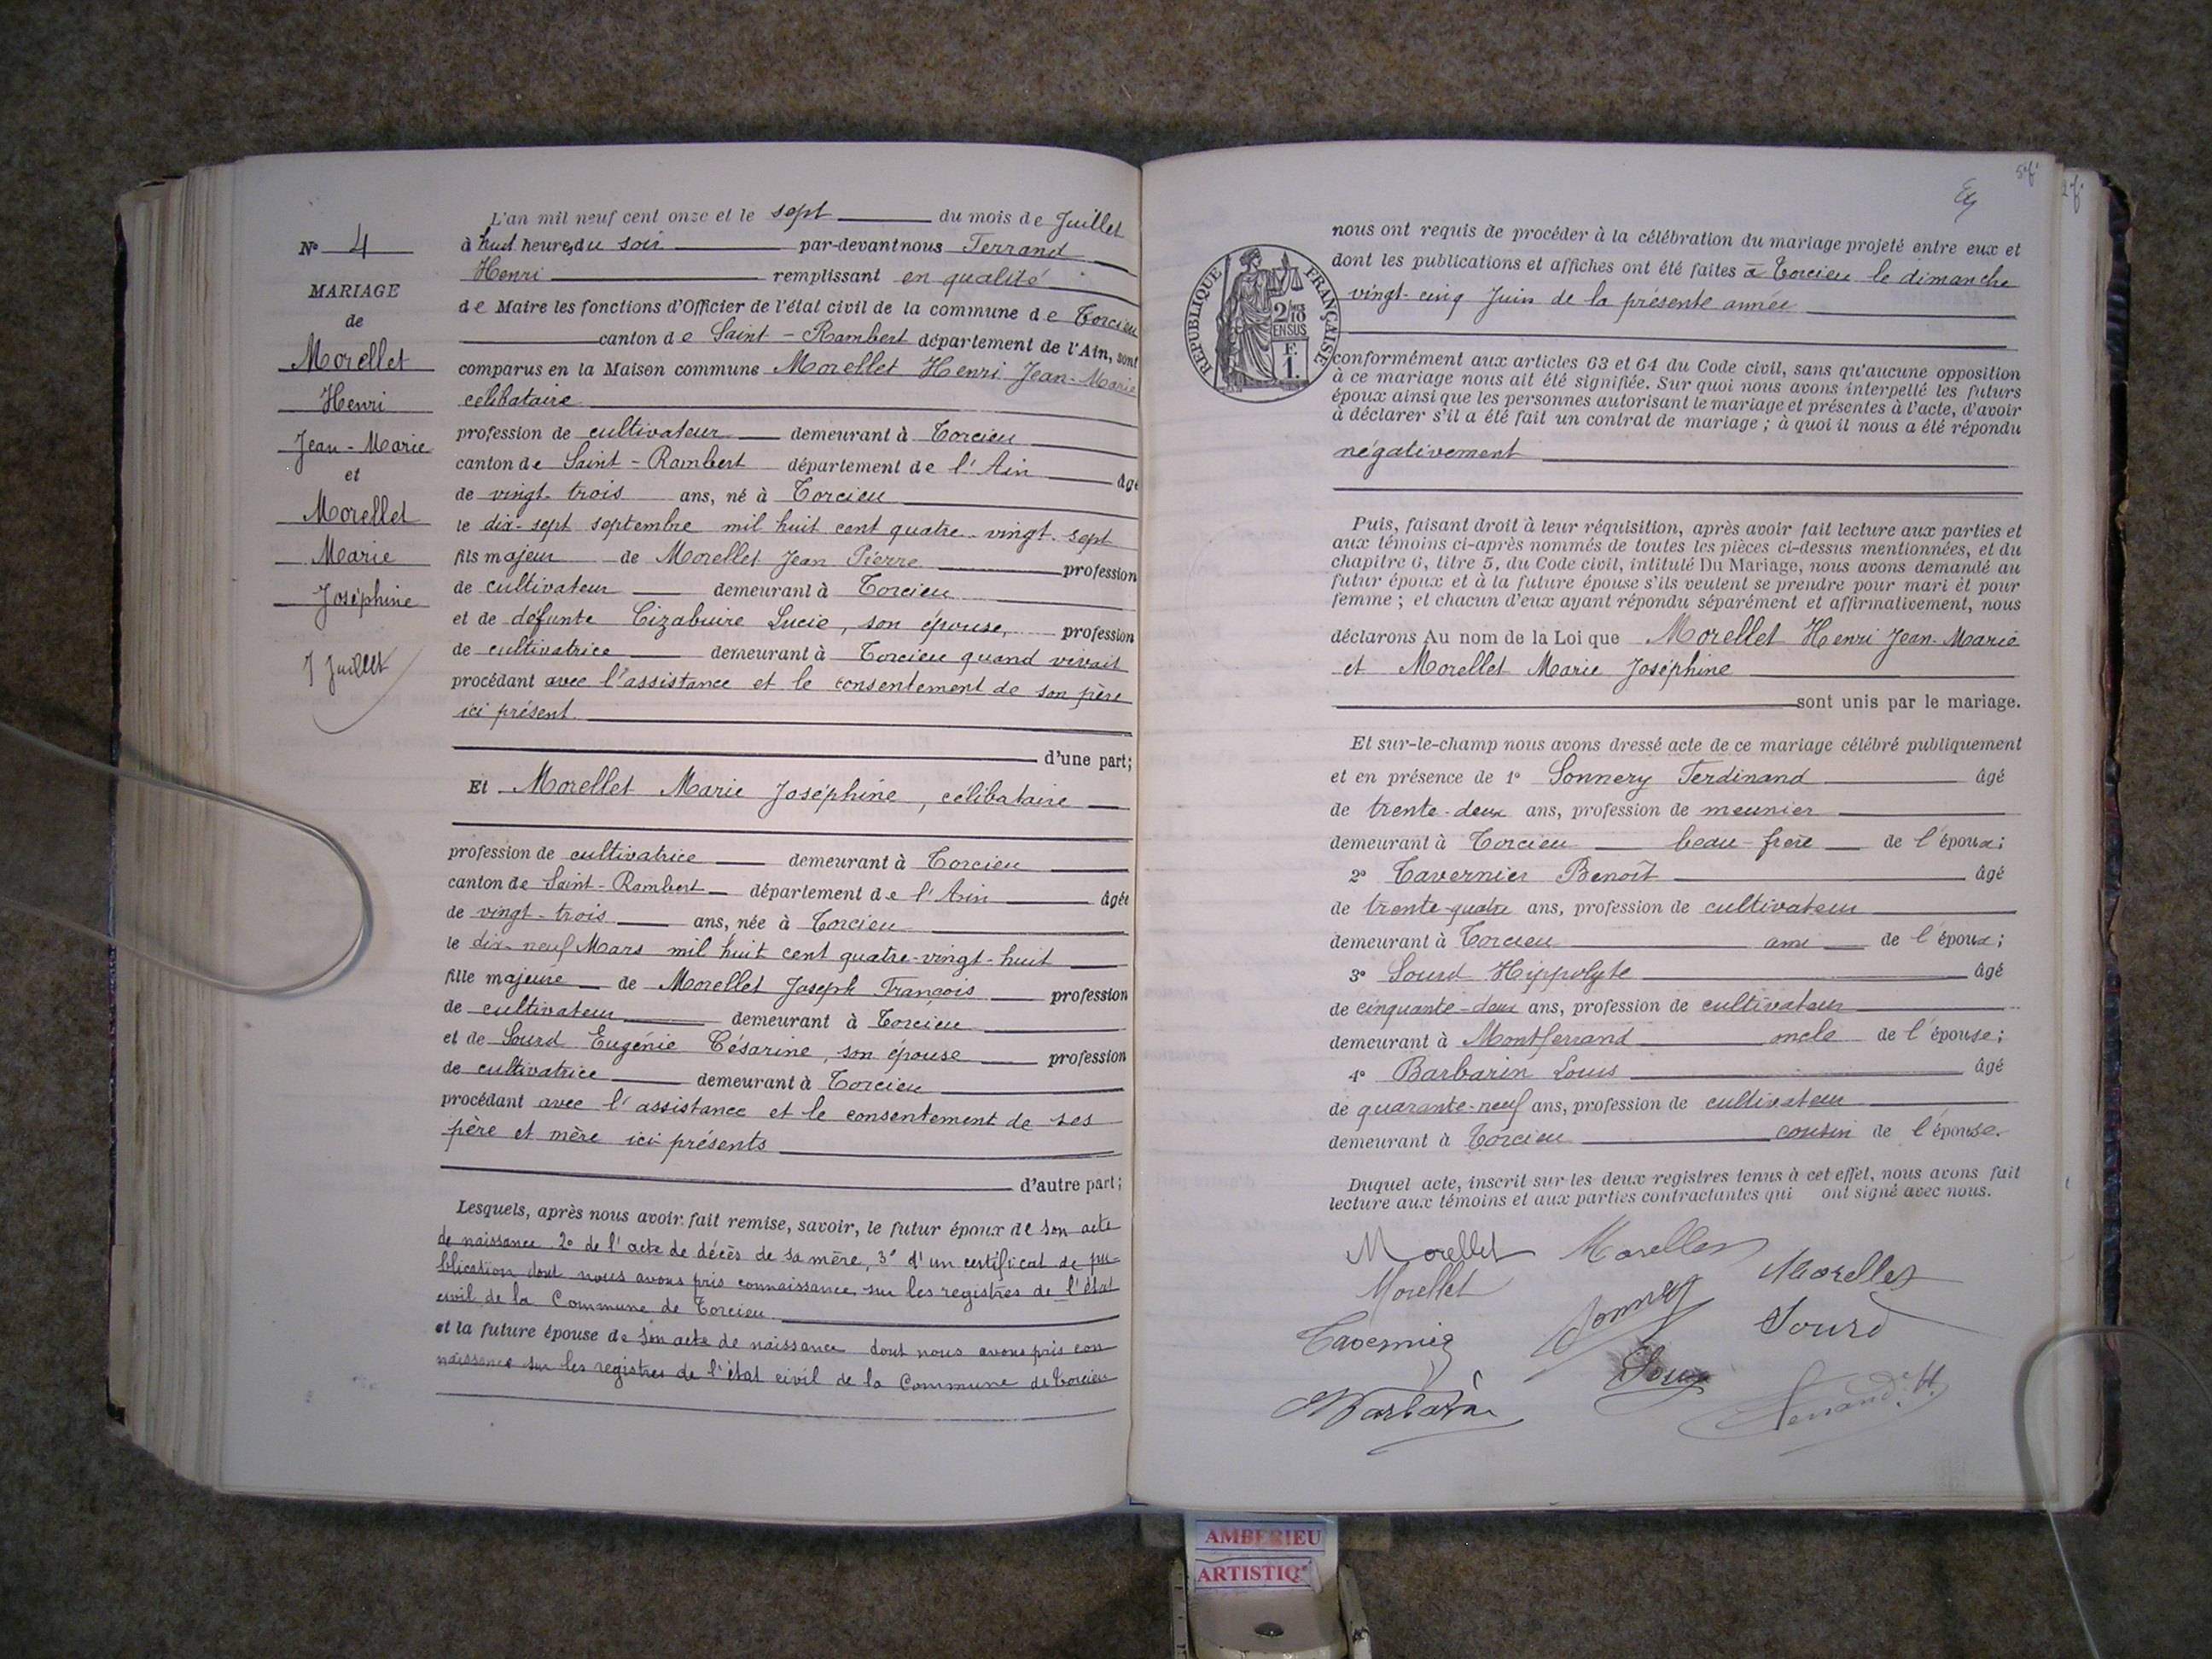 N° 4
MARIAGE
de
Morellet
Henri
Jean-Marie
et
Morellet
Marie
Joséphine
7 Juillet
L'an mil neuf cent onze et le sept du mois de Juillet
à huit heures du soir par-devant nous Ferrand
Henri remplissant en qualité
de Maire les fonctions d'Officier de l'état civil de la commune de Torcieu
canton de Saint-Rambert département de l'Ain, sont
comparus en la Maison commune Morellet Henri Jean-Marie
célibataire
profession de cultivateur demeurant à Torcieu
canton de Saint-Rambert département de l'Ain âgé
de vingt-trois ans, né à Torcieu
le dix-sept septembre mil huit cent quatre-vingt-sept
fils majeur de Morellet Jean Pierre profession
de cultivateur demeurant à Torcieu
et de défunte Cizabuire Lucie, son épouse, profession
de cultivatrice demeurant à Torcieu quand vivait
procédant avec l'assistance et le consentement de son père
ici présent
d'une part;
Et Morellet Marie Joséphine, célibataire
profession de cultivatrice demeurant à Torcieu
canton de Saint-Rambert département de l'Ain âgée
de vingt-trois ans, née à Torcieu
le dix-neuf Mars mil huit cent quatre-vingt-huit
fille majeure de Morellet Joseph François profession
de cultivateur demeurant à Torcieu
et de Sourd Eugénie Césarine, son épouse profession
de cultivatrice demeurant à Torcieu
procédant avec l'assistance et le consentement de ses
père et mère ici présents
d'autre part;
Lesquels, après nous avoir fait remise, savoir, le futur époux de son acte
de naissance 2° de l'acte de décès de sa mère, 3° d'un certificat de pu-
blication dont nous avons pris connaissance sur les registres de l'état
civil de la Commune de Torcieu
et la future épouse de son acte de naissance dont nous avons pris con
naissance sur les registres de l'état civil de la Commune de Torcieu
RÉPUBLIQUE FRANÇAISE
2/10
EN SUS
F.
1.
nous ont requis de procéder à la célébration du mariage projeté entre eux et
dont les publications et affiches ont été faites à Torcieu le dimanche
vingt-cinq Juin de la présente année
conformément aux articles 63 et 64 du Code civil, sans qu'aucune opposition
à ce mariage nous ait été signifiée. Sur quoi nous avons interpellé les futurs
époux ainsi que les personnes autorisant le mariage et présentes à l'acte, d'avoir
à déclarer s'il a été fait un contrat de mariage ; à quoi il nous a été répondu
négativement
Puis, faisant droit à leur réquisition, après avoir fait lecture aux parties et
aux témoins ci-après nommés de toutes les pièces ci-dessus mentionnées, et du
chapitre 6, titre 5, du Code civil, intitulé Du Mariage, nous avons demandé au
futur époux et à la future épouse s'ils veulent se prendre pour mari et pour
femme ; et chacun d'eux ayant répondu séparément et affirmativement, nous
déclarons Au nom de la Loi que Morellet Henri Jean-Marie
et Morellet Marie Joséphine
sont unis par le mariage.
Et sur-le-champ nous avons dressé acte de ce mariage célébré publiquement
et en présence de 1° Sonnery Ferdinand âgé
de trente-deux ans, profession de meunier
demeurant à Torcieu beau-frère de l'époux;
2° Tavernier Benoît âgé
de trente-quatre ans, profession de cultivateur
demeurant à Torcieu ami de l'époux;
3° Sourd Hippolyte âgé
de cinquante-deux ans, profession de cultivateur
demeurant à Montferrand oncle de l'épouse;
4° Barbarin Louis âgé
de quarante-neuf ans, profession de cultivateur
demeurant à Torcieu cousin de l'épouse.
Duquel acte, inscrit sur les deux registres tenus à cet effet, nous avons fait
lecture aux témoins et aux parties contractantes qui ont signé avec nous.
Morellet Morellet Morellet
Morellet
Tavernier Sonnery Sourd
Barbarin Sourd Ferrand H
AMBERIEU
ARTISTIQ